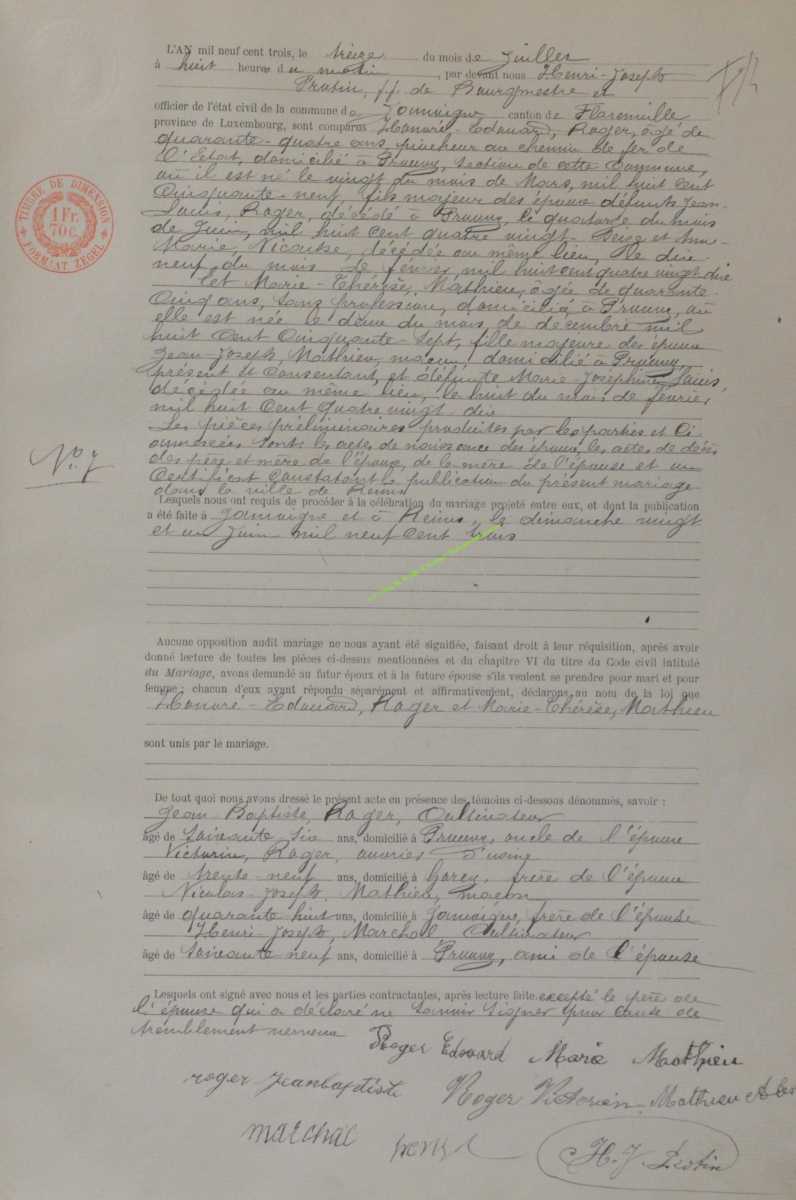 L'AN mil neuf cent trois, le treize du mois de Juillet
à huit heures du matin, par devant nous Henri-Joseph
ff. de Bourgmestre et
officier de l'état civil de la commune de Jamoigne canton de Florenville
province de Luxembourg, sont comparus Honoré-Edouard, Roger, âgé de
quarante-quatre ans piocheur au chemin de fer de
l'Etat, domicilié à Prouvy, section de cette Commune,
où il est né le vingt du mois de Mars, mil huit cent
Cinquante-neuf, fils majeur des époux défunts Jean-
Louis, Roger, décédé à Prouvy, le quatorze du mois
de Juin, mil huit Cent quatre vingt-Seize et
Marie, décédée au même lieu, le dix
neuf du mois de février mil huit cent quatre vingt dix
Et Marie-Thérèse, Mathieu, âgée de quarante-
Cinq ans, sans profession, domiciliée à Prouvy, où
elle est née le douze du mois de décembre mil
huit Cent Cinquante-Sept, fille majeure des époux
Jean-Joseph, Mathieu, maçon, domicilié à Prouvy,
présent et Consentant, et défunte Marie-Joséphine, Louis,
décédée au même lieu, le huit du mois de février
mil huit Cent quatre vingt dix
Les pièces préliminaires produites par les parties et Ci
annexées sont: les actes de naissance des époux, les actes de décès
des père et mère de l'époux, de la mère de l'épouse et un
Certificat Constatant la publication du présent mariage
dans la ville de Reims
N° 7
Lesquels nous ont requis de procéder à la célébration du mariage projeté entre eux, et dont la publication
a été faite à Jamoigne et à Reims, le dimanche vingt
et un Juin mil neuf Cent trois
Aucune opposition audit mariage ne nous ayant été signifiée, faisant droit à leur réquisition, après avoir
donné lecture de toutes les pièces ci-dessus mentionnées et du chapitre VI du titre du Code civil intitulé
du Mariage, avons demandé au futur époux et à la future épouse s'ils veulent se prendre pour mari et pour
femme; chacun d'eux ayant répondu séparément et affirmativement, déclarons au nom de la loi que
Honoré-Edouard, Roger et Marie-Thérèse, Mathieu
sont unis par le mariage.
De tout quoi nous avons dressé le présent acte en présence des témoins ci-dessous dénommés, savoir :
Jean Baptiste, Roger, Cultivateur
âgé de Soixante six ans, domicilié à Prouvy, oncle de l'époux
Victorin, Roger, ouvrier d'usine
âgé de trente-neuf ans, domicilié à Gorcy, frère de l'époux
Nicolas-Joseph, Mathieu, maçon
âgé de quarante huit ans, domicilié à Jamoigne, frère de l'épouse
Henri-Joseph, Marchal, Cultivateur
âgé de Soixante neuf ans, domicilié à Prouvy, ami de l'épouse
Lesquels ont signé avec nous et les parties contractantes, après lecture faite excepté le père de
l'épouse qui a déclaré ne savoir signer pour cause de
tremblement nerveux
Roger Edouard Marie Mathieu
roger jeanbaptiste Roger Victorin Mathieu
marchal henri H. J.
TIMBRE DE DIMENSION
1 Fr.
70 c.
FORMAAT ZEGEL